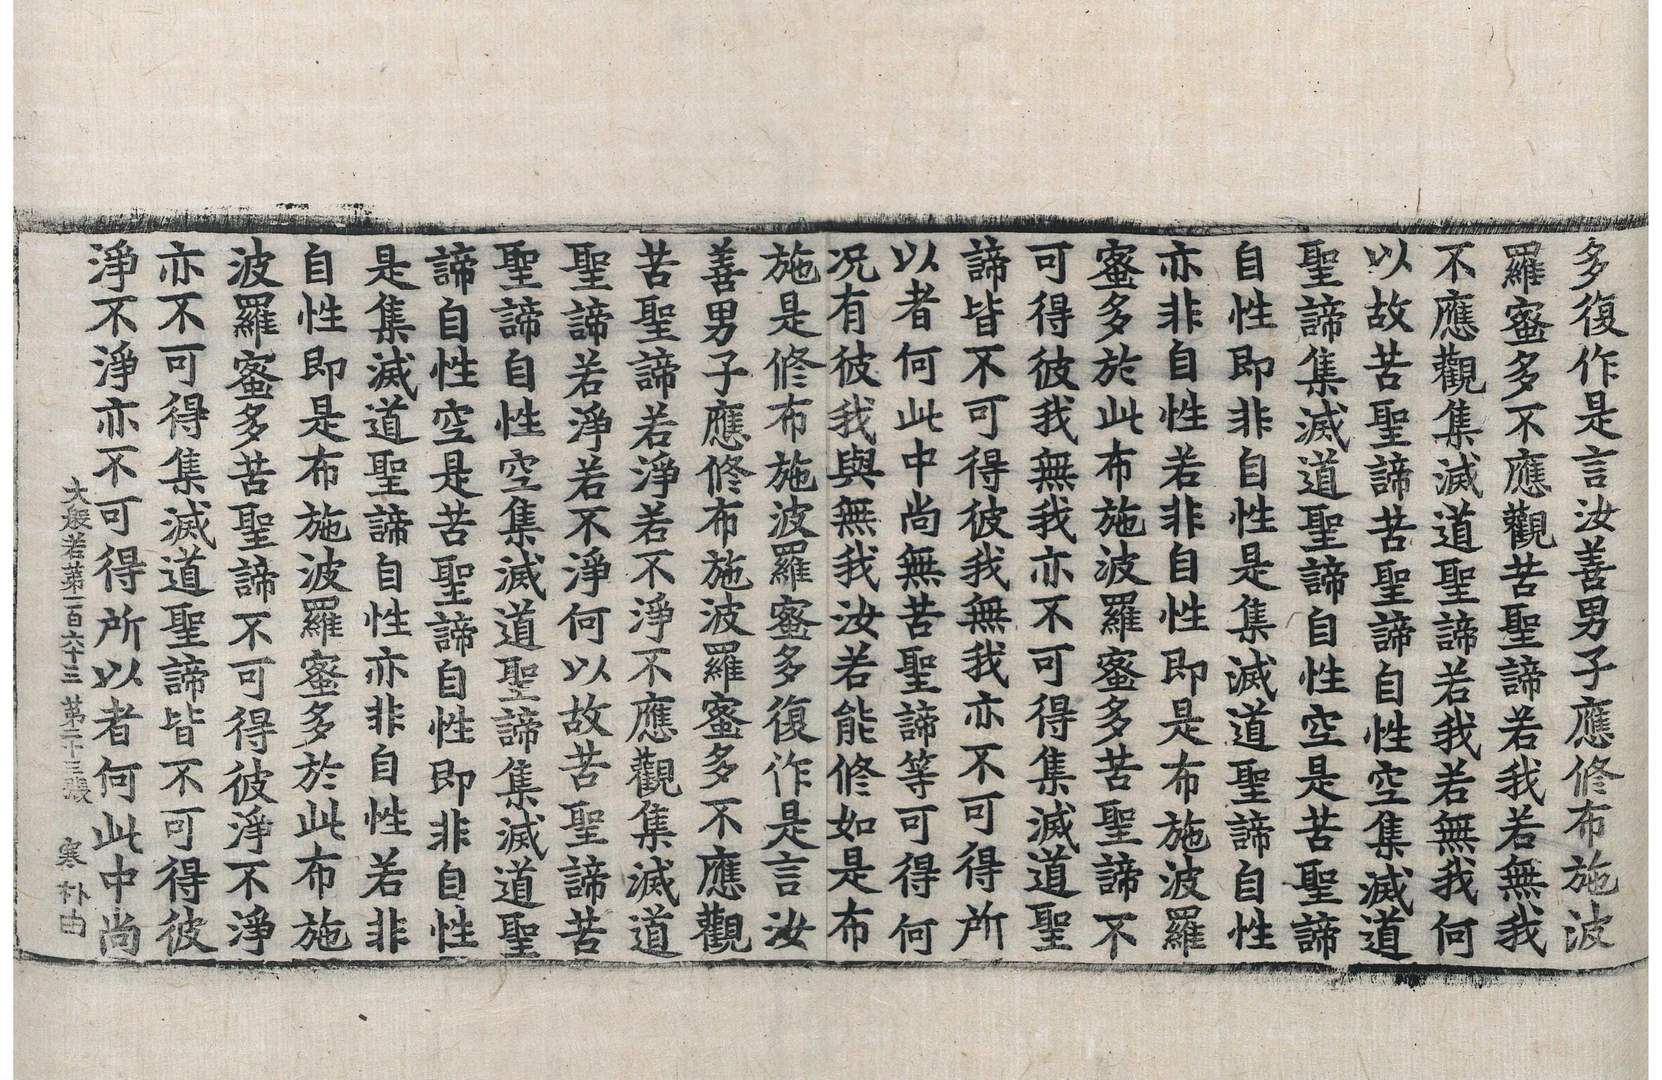 多復作是言汝善男子應修布施波
羅蜜多不應觀苦聖諦若我若無我
不應觀集滅道聖諦若我若無我何
以故苦聖諦苦聖諦自性空集滅道
聖諦集滅道聖諦自性空是苦聖諦
自性即非自性是集滅道聖諦自性
亦非自性若非自性即是布施波羅
蜜多於此布施波羅蜜多苦聖諦不
可得彼我無我亦不可得集滅道聖
諦皆不可得彼我無我亦不可得所
以者何此中尚無苦聖諦等可得何
况有彼我與無我汝若能修如是布
施是修布施波羅蜜多復作是言汝
善男子應修布施波羅蜜多不應觀
苦聖諦若淨若不淨不應觀集滅道
聖諦若淨若不淨何以故苦聖諦苦
聖諦自性空集滅道聖諦集滅道聖
諦自性空是苦聖諦自性即非自性
是集滅道聖諦自性亦非自性若非
自性即是布施波羅蜜多於此布施
波羅蜜多苦聖諦不可得彼淨不淨
亦不可得集滅道聖諦皆不可得彼
淨不淨亦不可得所以者何此中尚
大般若第一百六十三 第二十三張 寒 朴由